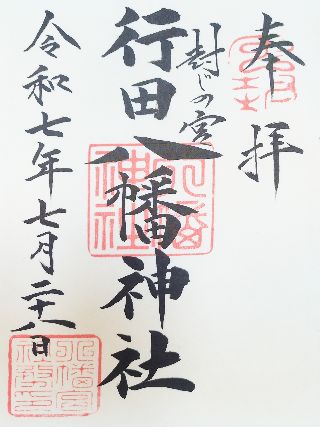 奉拝
封じの宮
行田八幡神社
令和七年七月二十八日